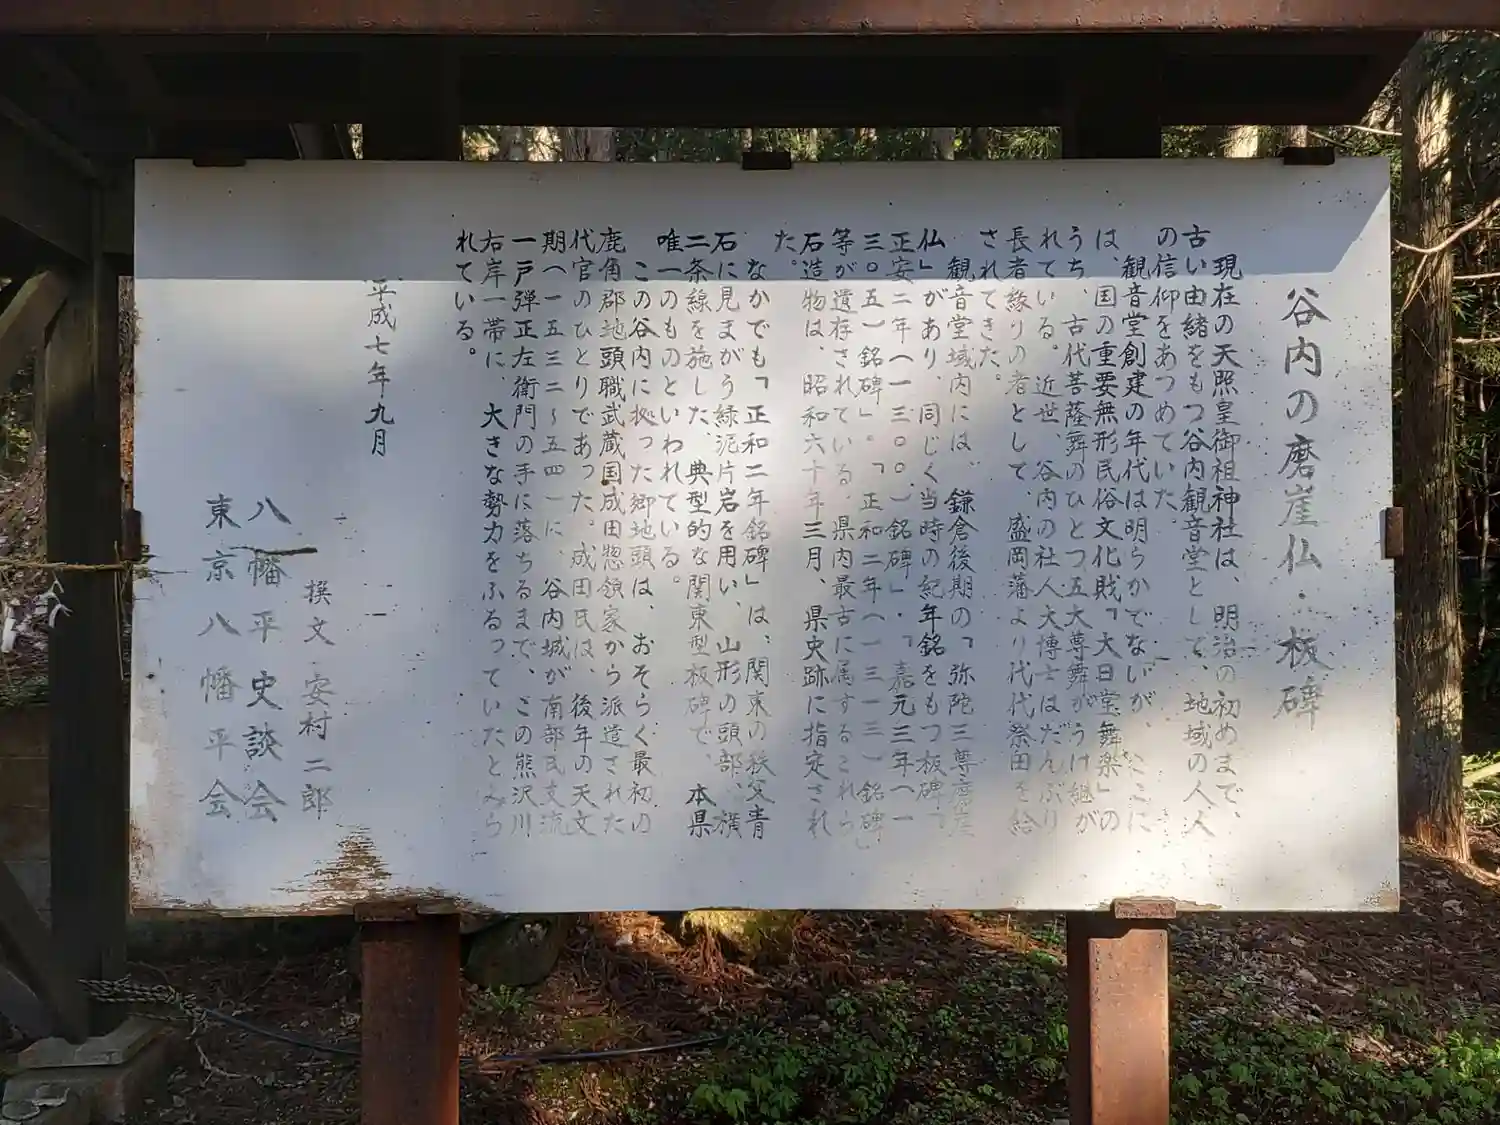 谷内の磨崖仏・板碑
現在の天照皇御祖神社は、明治の初めまで、
古い由緒をもつ谷内観音堂として、地域の人人
の信仰をあつめていた。
観音堂創建の年代は明らかでないが、ここに
は、国の重要無形民俗文化財「大日堂舞楽」の
うち、古代菩薩舞のひとつ五大尊舞がうけ継が
れている。近世、谷内の社人大博士はだんぶり
長者縁りの者として、盛岡藩より代代祭田を給
されてきた。
観音堂域内には、鎌倉後期の「弥陀三尊磨崖
仏」があり、同じく当時の紀年銘をもつ板碑「
正安二年(一三〇〇)銘碑」・「嘉元三年(一
三〇五)銘碑」。「正和二年(一三一三)銘碑」
等が遺存されている。県内最古に属するこれら
石造物は、昭和六十年三月、県史跡に指定され
た。
なかでも「正和二年銘碑」は、関東の秩父青
石に見まがう緑泥片岩を用い、山形の頭部、横
二条線を施した、典型的な関東型板碑で、本県
唯一のものといわれている。
この谷内に拠った郷地頭は、おそらく最初の
鹿角郡地頭職武蔵国成田惣領家から派遣された
代官のひとりであった。成田氏は、後年の天文
期(一五三二〜五四)に、谷内城が南部氏支流
一戸弾正左衛門の手に落ちるまで、この熊沢川
右岸一帯に、大きな勢力をふるっていたとみら
れている。
平成七年九月
撰文・安村二郎
八幡平史談会
東京八幡平会